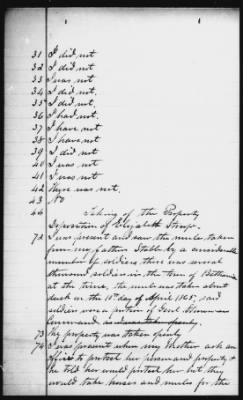 31 I did not
32 I did not
33 I was not
34 I did not.
35 I did not.
36 I had not
37 I have not
38 I have not
39 I did not
40 I was not
41 I was not
42 There was not.
43 No
44
Taking of the Property
Deposition of Elizabeth
72 I was present and saw the mules taken
from my fathers Stable by a considerable
number of soldiers, there was several
thousand soldiers in the town of Bethania
at the time, the mule was taken about
dusk in the 10th day of April 1865, said
soldiers were a portion of Genl
Command
73 My property was taken
74 I was present when my Mother ask an
officer to protect her person and property &
he told her would protect her but they
would take horses and mules for the